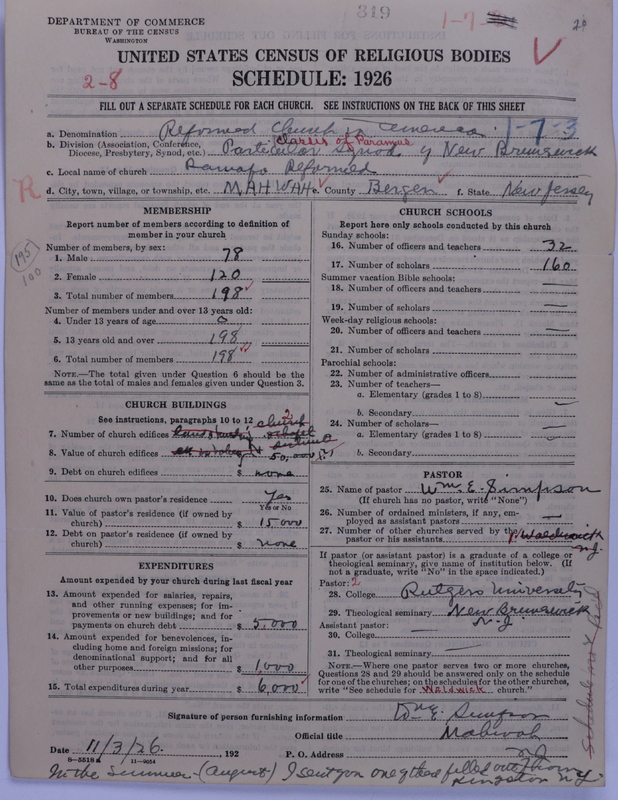 319
1-7-
20
DEPARTMENT OF COMMERCE
BUREAU OF THE CENSUS
WASHINGTON
UNITED STATES CENSUS OF RELIGIOUS BODIES
2-8
SCHEDULE: 1926
FILL OUT A SEPARATE SCHEDULE FOR EACH CHURCH. SEE INSTRUCTIONS ON THE BACK OF THIS SHEET
a. Denomination Reformed Church in America 1-7-3
b. Division (Association, Conference, Diocese, Presbytery, Synod, etc.) Classis of Paramus Particular Synod of New Brunswick
c. Local name of church Ramapo Reformed
R
d. City, town, village, or township, etc. MAHWAH e. County Bergen f. State New Jersey
195
100
MEMBERSHIP
Report number of members according to definition of member in your church
Number of members, by sex:
1. Male 78
2. Female 120
3. Total number of members 198
Number of members under and over 13 years old:
4. Under 13 years of age 0
5. 13 years old and over 198
6. Total number of members 198
NOTE.—The total given under Question 6 should be the same as the total of males and females given under Question 3.
CHURCH BUILDINGS
See instructions, paragraphs 10 to 12
7. Number of church edifices 2 church
8. Value of church edifices 50,000
9. Debt on church edifices $ none
10. Does church own pastor's residence Yes
Yes or No
11. Value of pastor's residence (if owned by church) $ 15000
12. Debt on pastor's residence (if owned by church) $ none
EXPENDITURES
Amount expended by your church during last fiscal year
13. Amount expended for salaries, repairs, and other running expenses; for improvements or new buildings; and for payments on church debt $ 5.000
14. Amount expended for benevolences, including home and foreign missions; for denominational support; and for all other purposes $ 1000
15. Total expenditures during year $ 6,000
CHURCH SCHOOLS
Report here only schools conducted by this church
Sunday schools:
16. Number of officers and teachers 32
17. Number of scholars 160
Summer vacation Bible schools:
18. Number of officers and teachers —
19. Number of scholars —
Week-day religious schools:
20. Number of officers and teachers —
21. Number of scholars
Parochial schools:
22. Number of administrative officers
23. Number of teachers—
a. Elementary (grades 1 to 8) —
b. Secondary
24. Number of scholars—
a. Elementary (grades 1 to 8) —
b. Secondary
PASTOR
25. Name of pastor Wm. E. Simpson
(If church has no pastor, write "None")
26. Number of ordained ministers, if any, employed as assistant pastors —
27. Number of other churches served by the pastor or his assistants 1 Waldwick N.J.
If pastor (or assistant pastor) is a graduate of a college or theological seminary, give name of institution below. (If not a graduate, write "No" in the space indicated.)
Pastor: 2
28. College Rutgers University
29. Theological seminary New Brunswick N-J
Assistant pastor:
30. College —
31. Theological seminary —
NOTE.—Where one pastor serves two or more churches, Questions 28 and 29 should be answered only on the schedule for one of the churches; on the schedules for the other churches, write "See schedule for Waldwick church."
Signature of person furnishing information Wm E. Simpson
Official title
Date 11/3/26, 192 P. O. Address Mahwah NJ
8-5518a 11-9054
In the Summer - (August) I sent you one of these filled out from Kingston N.Y.